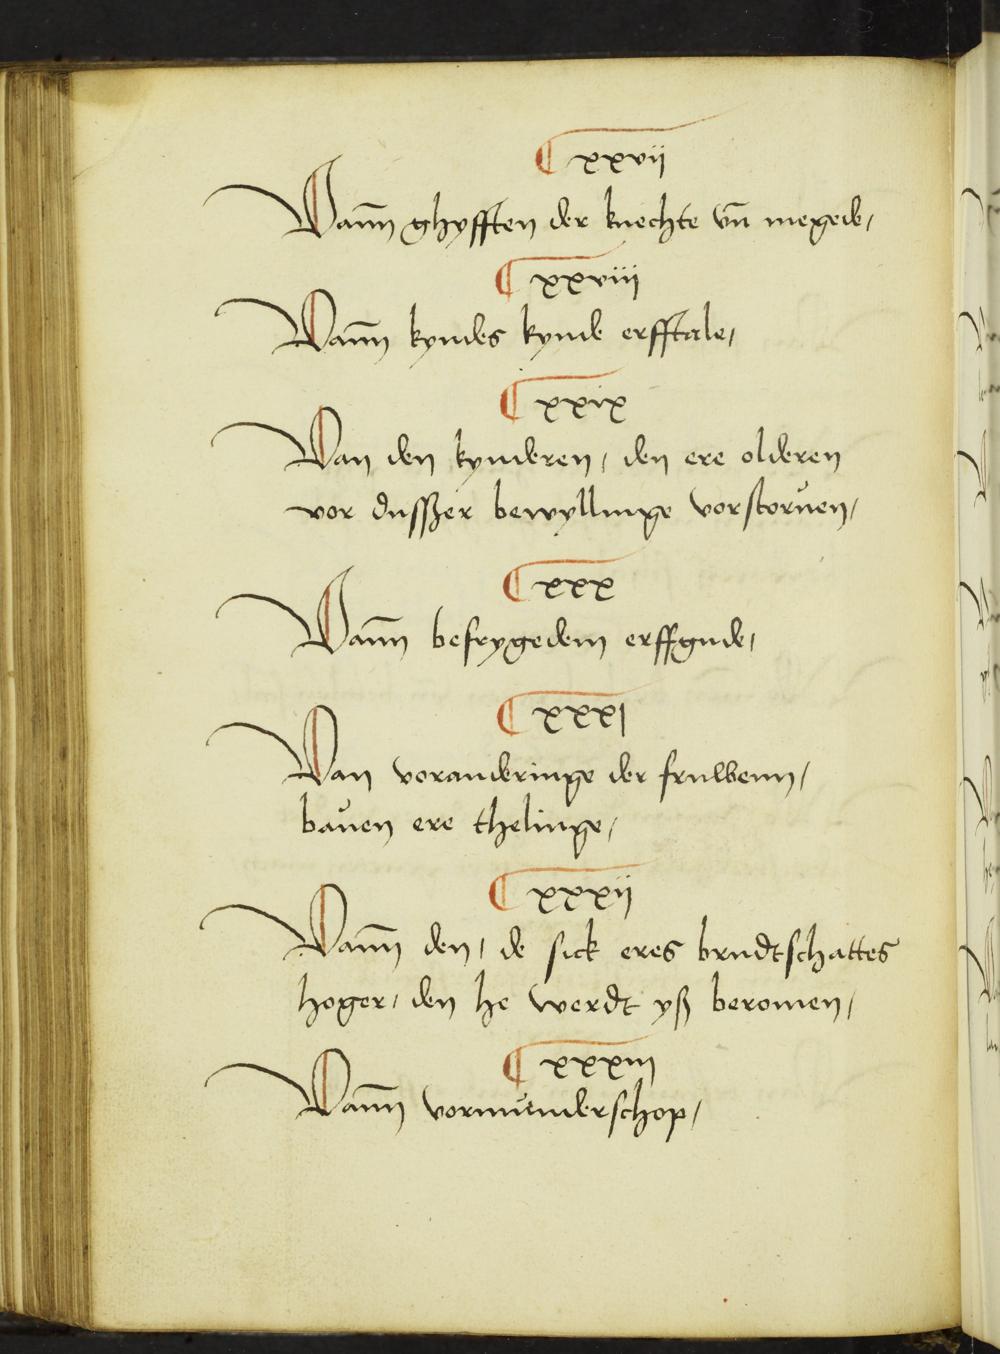 ¶ xxvij
Vann̄ ghyfften der knechte vn̄ megede/
¶ xxviij
Vann̄ kyndes kynde erfftale/
¶ xxix
Van den kynderen/ den ere olderen
vor dusszer bewyllinge vorstoruen/
¶ xxx
Vann̄ befrygedem erffgude/
¶ xxxj
Van voranderinge der fruwenn/
bauen ere thelinge/
¶ xxxij
Vann̄ den/ de sick eres brudtschattes
hoger/ den he werdt yß beromen/
¶ xxxiij
Vann̄ vormunderschop/